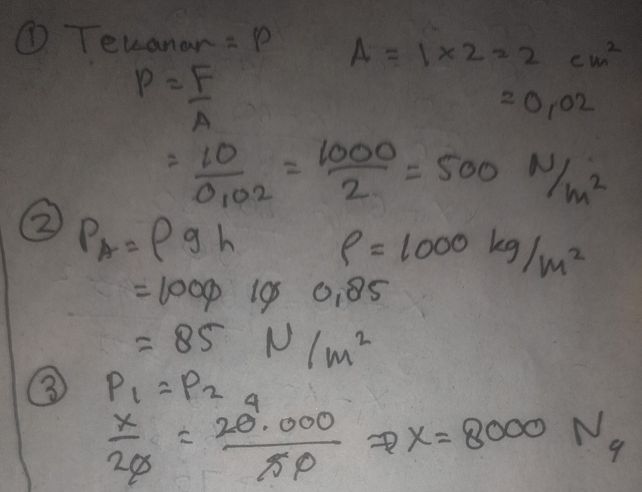 ① Tekanan = P    A = 1 × 2 = 2 cm²
P = F/A    = 0,02
= 10/0,02 = 1000/2 = 500 N/m²
② P_A = ρ g h    ρ = 1000 kg/m²
= 1000 10 0,85
= 85 N/m²
③ P₁ = P₂
x/20 = 20.000/50 ⇒ x = 8000 N